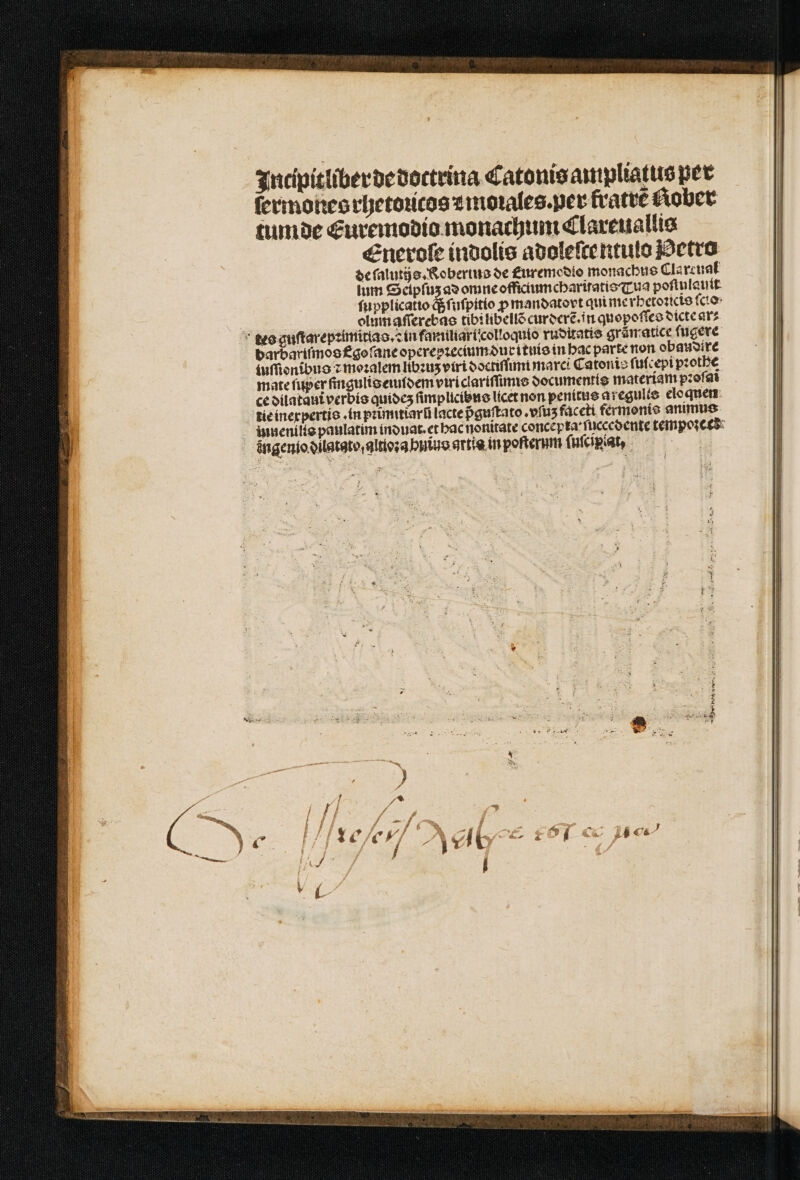 Incipit liber de doctrina Catonis ampliatus per
sermones rhetoricos ⁊ morales. per fratrē Rober
tum de Euremodio monachum Clareuallis
Enerose indolis adolescentulo Petro
de salutijs. Robertus de Euremodio monachus Clareual
lum Seipsuꝫ ad omne officium charitatis Tua postulauit
supplicatio ꝙ̃ suspitio ꝓ mandatort qui me rhetoricis scio
olum asserebas tibi libellō curderē. in quo posses dicte ar⸗
tes gustare primitias. ⁊ in familiari colloquio ruditatis grāmatice fugere
barbarismos Ego sane opereprecium duci tuis in hac parte non obaudire
iussionibus ⁊ moralem libꝛuꝫ viri doctissimi marci Catonis suscepi prothe
mate super singulis eiusdem viri clarissimis documentis materiam prosai
ce dilataui verbis quideꝫ simplicibus licet non penitus a regulis eloquen
tie inexpertis. in primitiarū lacte p̄gustato. vsuꝫ faceti sermonis animus
iuuenilis paulatim induat. et hac nonitate concepta succedente tempore ed
ingenio dilatato, altiora huius artis in posterum suscipiat,
De